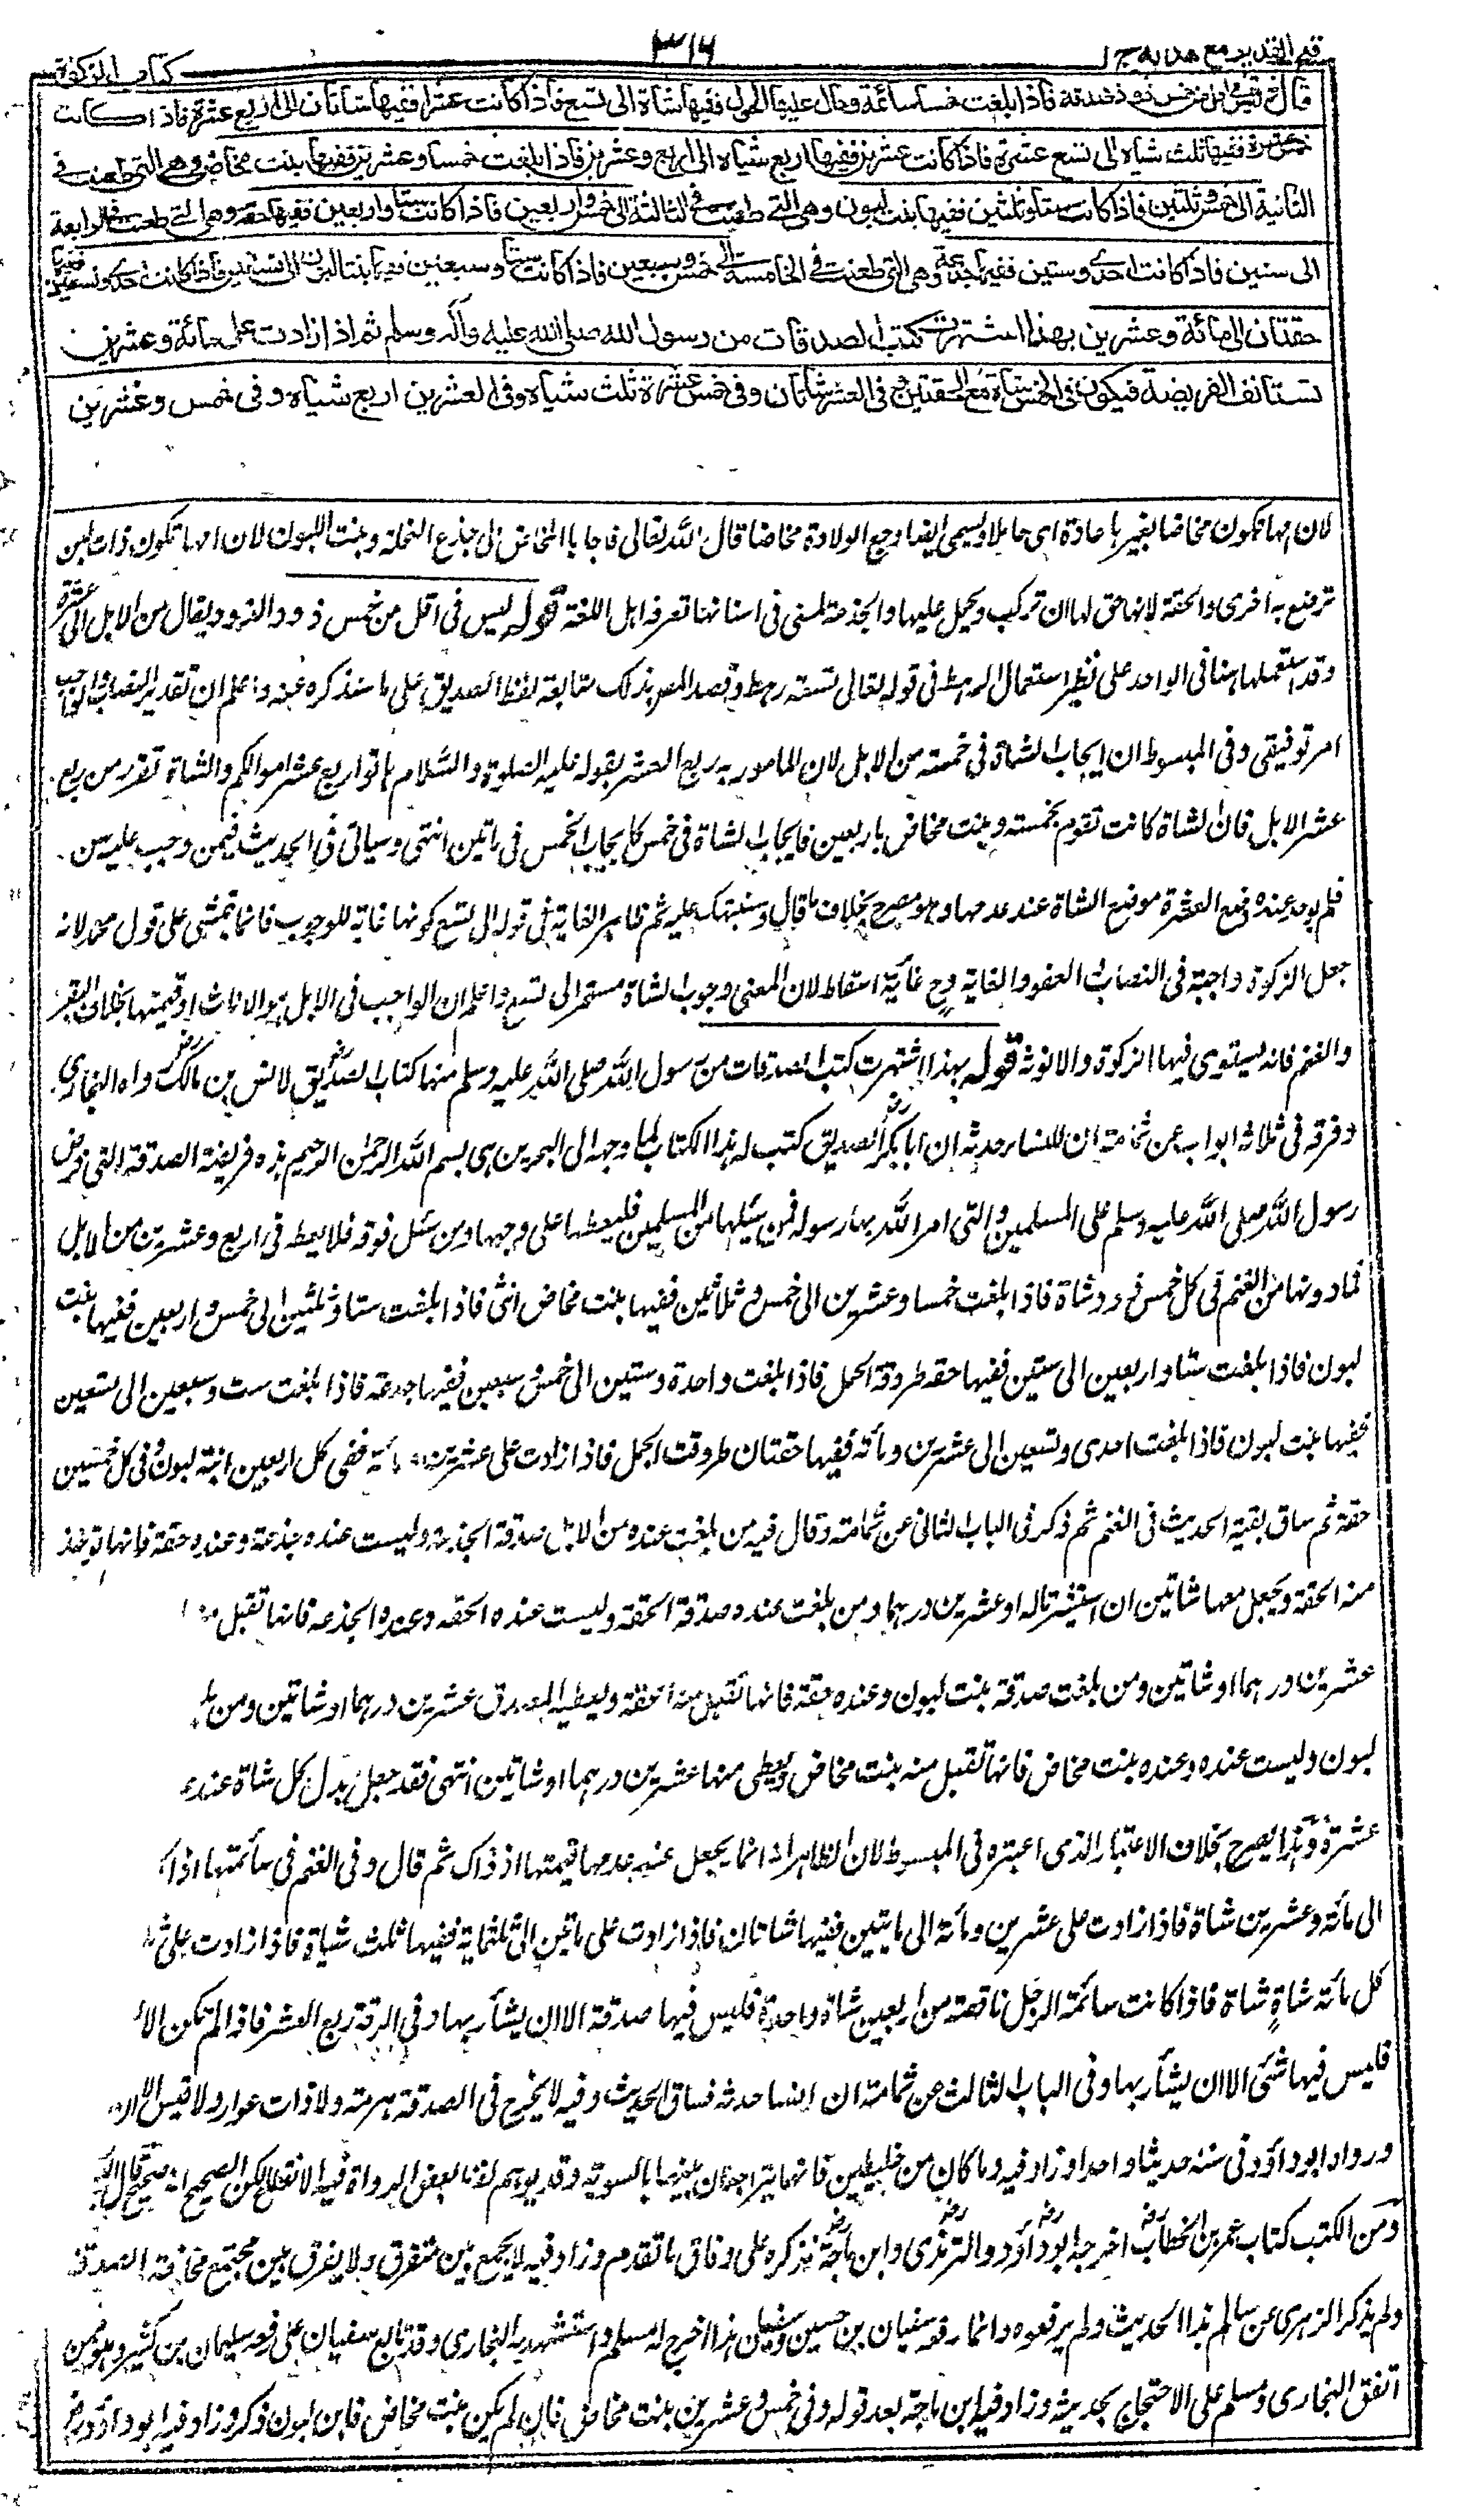 فتح القدير مع هدايه ج ١
٣١٦
كتاب الزكوة
قال ليس في اقل من خمس ذود صدقة فاذا بلغت خمسا سائمة وحال عليها الحول ففيها شاة الى تسع فاذا كانت عشرا ففيها شاتان الى اربع عشرة فاذا كانت
خمس عشرة ففيها ثلث شياه الى تسع عشرة فاذا كانت عشرين ففيها اربع شياه الى اربع وعشرين فاذا بلغت خمسا وعشرين ففيها بنت مخاض وهى التى طعنت فى
الثانية الى خمس وثلثين فاذا كانت ستا وثلثين ففيها بنت لبون وهى التى طعنت فى الثالثة الى خمس واربعين فاذا كانت ستا واربعين ففيها حقة وهى التى طعنت فى الرابعة
الى ستين فاذا كانت احدى وستين ففيها جذعة وهى التى طعنت فى الخامسة الى خمس وسبعين فاذا كانت ستا وسبعين ففيها بنتا لبون الى تسعين فاذا كانت احدى وتسعين ففيها
حقتان الى مائة وعشرين بهذا اشتهرت كتب الصدقات من رسول الله صلى الله عليه وآله وسلم ثم اذا زادت على مائة وعشرين
تستانف الفريضة فيكون فى الخمس شاة مع الحقتين وفى العشر شاتان وفى خمس عشرة ثلث شياه وفى العشرين اربع شياه وفى خمس وعشرين
لان امها تكون مخاضا بغيرها عادة اى حاملا ويسمى ايضا وجع الولادة مخاضا قال الله تعالى فاجاءها المخاض الى جذع النخلة وبنت اللبون لان امها تكون ذات لبن
ترضع به اخرى والحقة لانها حق لها ان تركب ويحمل عليها والجذعة لمعنى فى اسنانها تعرفه اهل اللغة قوله ليس فى اقل من خمس ذود الذود يقال من الابل الى عشرة
وقد استعملها هنا فى الواحد على نظير استعمال الرهط فى قوله تعالى تسعة رهط وقصد المصر بذلك متابعة لفظ الصديق على ما سنذكره عنه واعلم ان تقدير النصاب والواجب
امر توقيفى وفى المبسوط ان ايجاب الشاة فى خمسة من الابل لان المامور به ربع العشر بقوله عليه الصلوة والسلام هاتوا ربع عشر اموالكم والشاة تقرر من ربع
عشر الابل فان الشاة كانت تقوم بخمسة وبنت مخاض باربعين فايجاب الشاة فى خمس كايجاب الخمس فى مأتين انتهى وسياتى فى الحديث فيمن وجب عليه سن
فلم يوجد عنده وضع العشرة موضع الشاة عند عدمها وهو مصرح بخلاف ما قال وسننبهك عليه ثم ظاهر الغاية فى قوله الى تسع كونها غاية للوجوب فانما يتمشى على قول محمد لانه
جعل الزكوة واجبة فى النصاب والعفو والغاية ح غاية اسقاط لان المعنى وجوب الشاة مستمر الى تسع واعلم ان الواجب فى الابل هو الاناث او قيمتها بخلاف البقر
والغنم فانه يستوى فيها الذكورة والانوثة قوله بهذا اشتهرت كتب الصدقات من رسول الله صلى الله عليه وسلم منها كتاب الصديق لانس بن مالك رواه البخارى
وفرقه فى ثلاثة ابواب عن ثمامة ان انسا حدثه ان ابا بكر الصديق كتب له هذا الكتاب لما وجهه الى البحرين بسم الله الرحمن الرحيم هذه فريضة الصدقة التى فرض
رسول الله صلى الله عليه وسلم على المسلمين والتى امر الله بها رسوله فمن سئلها من المسلمين فليعطها على وجهها ومن سئل فوقه فلا يعط فى اربع وعشرين من الابل
فما دونها من الغنم فى كل خمس ذود شاة فاذا بلغت خمسا وعشرين الى خمس وثلاثين ففيها بنت مخاض انثى فاذا بلغت ستا وثلثين الى خمس واربعين ففيها بنت
لبون فاذا بلغت ستا واربعين الى ستين ففيها حقة طروقة الجمل فاذا بلغت واحدة وستين الى خمس وسبعين ففيها جذعة فاذا بلغت ست وسبعين الى تسعين
ففيها بنت لبون فاذا بلغت احدى وتسعين الى عشرين ومأئة ففيها حقتان طروقتا الجمل فاذا زادت على عشرين ومأئة ففى كل اربعين ابنة لبون وفى كل خمسين
حقة ثم ساق بقية الحديث فى الغنم ثم ذكر فى الباب الثانى عن ثمامة وقال فيه من بلغت عنده من الابل صدقة الجذعة وليست عنده جذعة وعنده حقة فانها توخذ
منه الحقة ويجعل معها شاتين ان استيسرتا له او عشرين درهما ومن بلغت عنده صدقة الحقة وليست عنده الحقة وعنده الجذعة فانها تقبل
عشرين درهما او شاتين ومن بلغت صدقة بنت لبون وعنده حقة فانها تقبل منه الحقة ويعطيه المصدق عشرين درهما او شاتين ومن
لبون وليست عنده وعنده بنت مخاض فانها تقبل منه بنت مخاض ويعطى منها عشرين درهما او شاتين انتهى فقد جعل بدل كل شاة عند
عشرة وهذا يصرح بخلاف الاعتبار الذى اعتبره فى المبسوط لان الظاهر انه انما يجعل عند عدمها قيمتها اذ ذاك ثم قال وفى الغنم فى سائمتها اذا
الى مأئة وعشرين شاة فاذا زادت على عشرين ومأئة الى مأتين ففيها شاتان فاذا زادت على مأتين الى ثلثمائة ففيها ثلث شياه فاذا زادت على
كل مأئة شاة شاة فاذا كانت سائمة الرجل ناقصة من اربعين شاة واحدة فليس فيها صدقة الا ان يشاء ربها وفى الرقة ربع العشر فاذا لم تكن الا
فليس فيها شئ الا ان يشاء ربها وفى الباب الثالث عن ثمامة ان انسا حدثه فساق الحديث وفيه لا يخرج فى الصدقة هرمة ولا ذات عوار ولا تيس الا
ورواه ابو داؤد فى سننه حديثا واحدا وزاد فيه وما كان من خليطين فانهما يتراجعان بينهما بالسوية وقد يوهم لفظ بعض الرواة فيه الانقطاع لكن الصحيح انه صحيح
ومن الكتب كتاب عمر بن الخطاب اخرجه ابو داؤد والترمذى وابن ماجة فذكره على وفاق ما تقدم وزاد فيه لا يجمع بين متفرق ولا يفرق بين مجتمع مخافة الصدقة
ولم يذكر الزهرى عن سالم هذا الحديث ولم يرفعوه وانما رفعه سفيان بن حسين وسفيان هذا اخرج له مسلم واستشهد به البخارى وقد تابع سفيان على رفعه سليمان بن كثير وهو ممن
اتفق البخارى ومسلم على الاحتجاج بحديثه وزاد فيه ابن ماجة بعد قوله وفى خمس وعشرين بنت مخاض فان لم يكن بنت مخاض فابن لبون ذكر وزاد فيه ابو داؤد